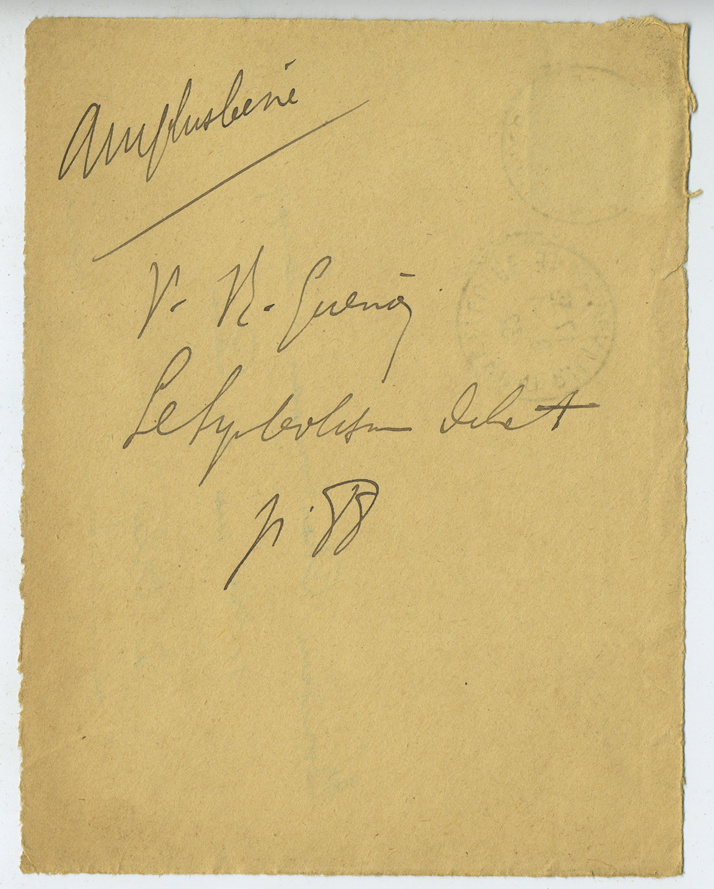 Amphisbène
V. R. Guénon
Le Symbolisme de la +
p. 88